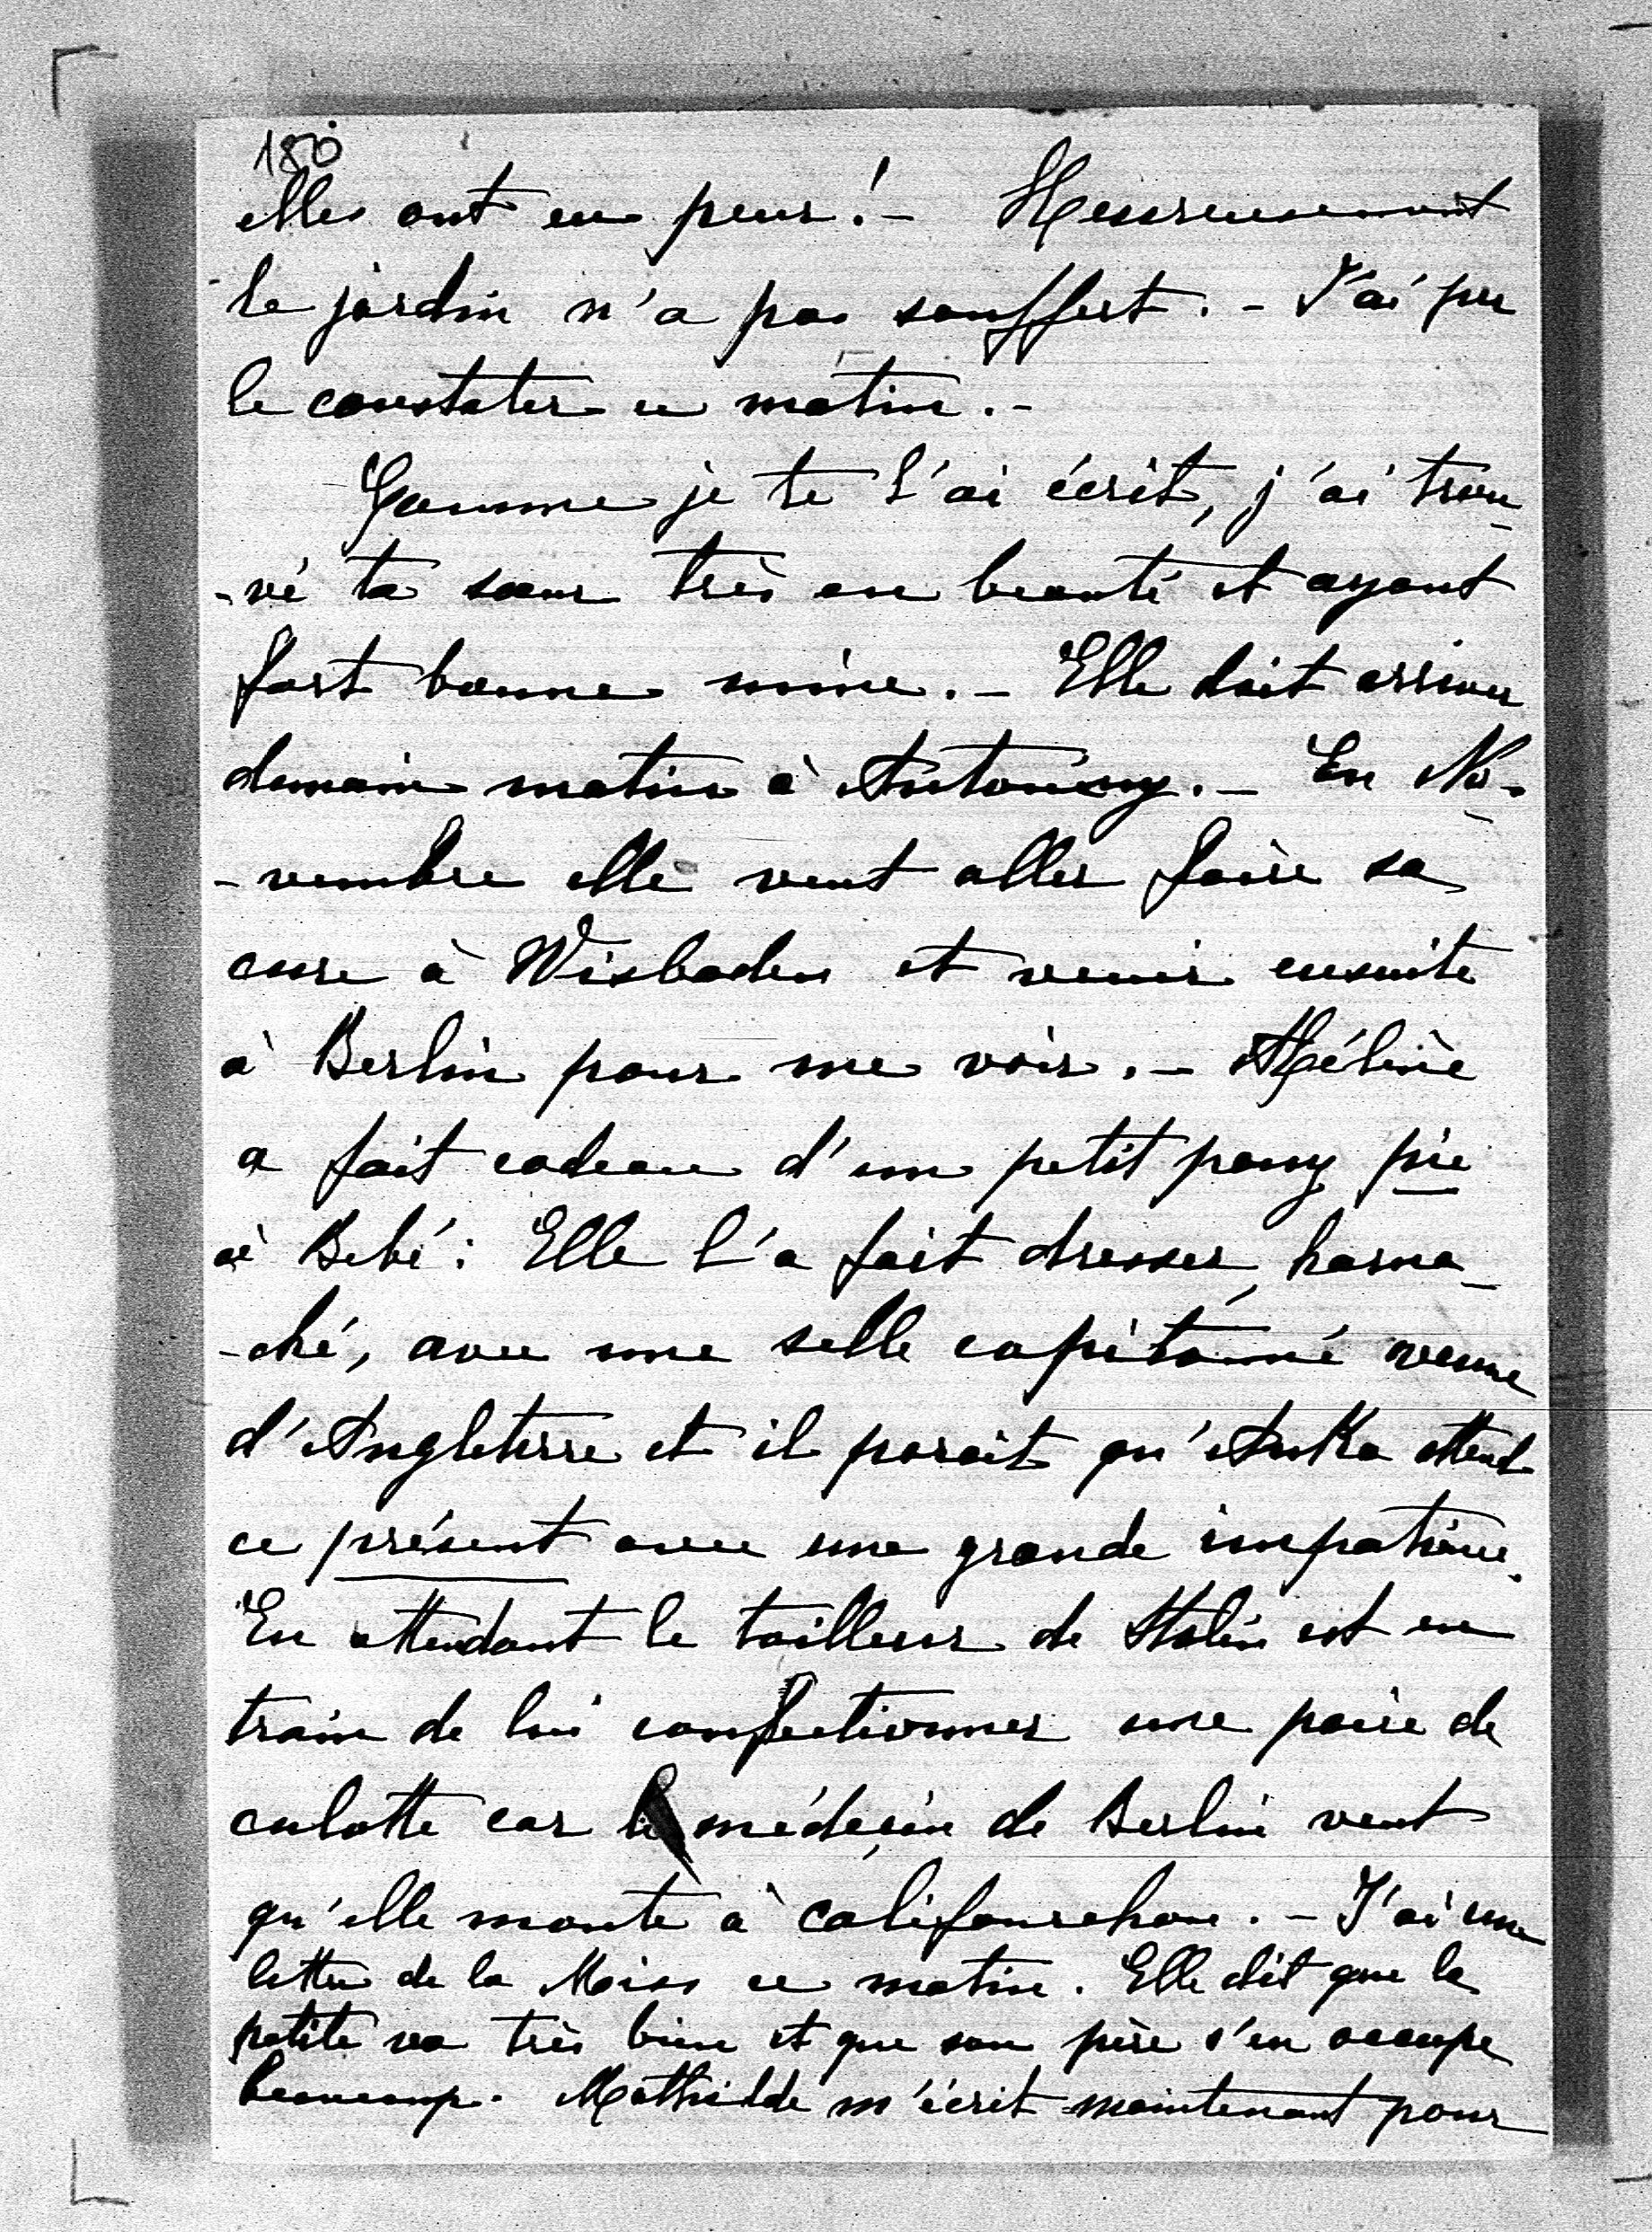 180
elles ont eu peur! - Heureusement
le jardin n'a pas souffert. - J'ai pu
le constater ce matin. -
Comme je te l'ai écrit, j'ai trou-
-vé ta sœur très en beauté et ayant
fort bonne mine. - Elle doit arriver
demain matin à Antoniny. - En No-
-vembre elle veut aller faire sa
cure à Wisbaden et venir ensuite
à Berlin pour me voir. - Hélène
a fait cadeau d'un petit pony pie
à Bebé: Elle l'a fait dresser, harna-
-ché, avec une selle capitonné venue
d'Angleterre et il parait qu'Anka attend
ce présent avec une grande impatience.
En attendant le tailleur de Stalin est en
train de lui confectionner une paire de
culotte car le médecin de Berlin veut
qu'elle monte à califourchon. - J'ai une
lettre de la Miss ce matin. Elle dit que la
petite va très bien et que son père s'en occupe
beaucoup. Mathilde m'écrit maintenant pour